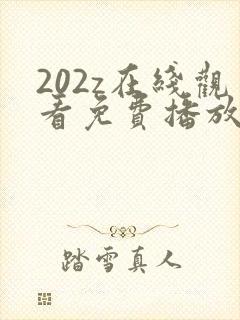 202z在綫觀
看免費播放
踏雪真人